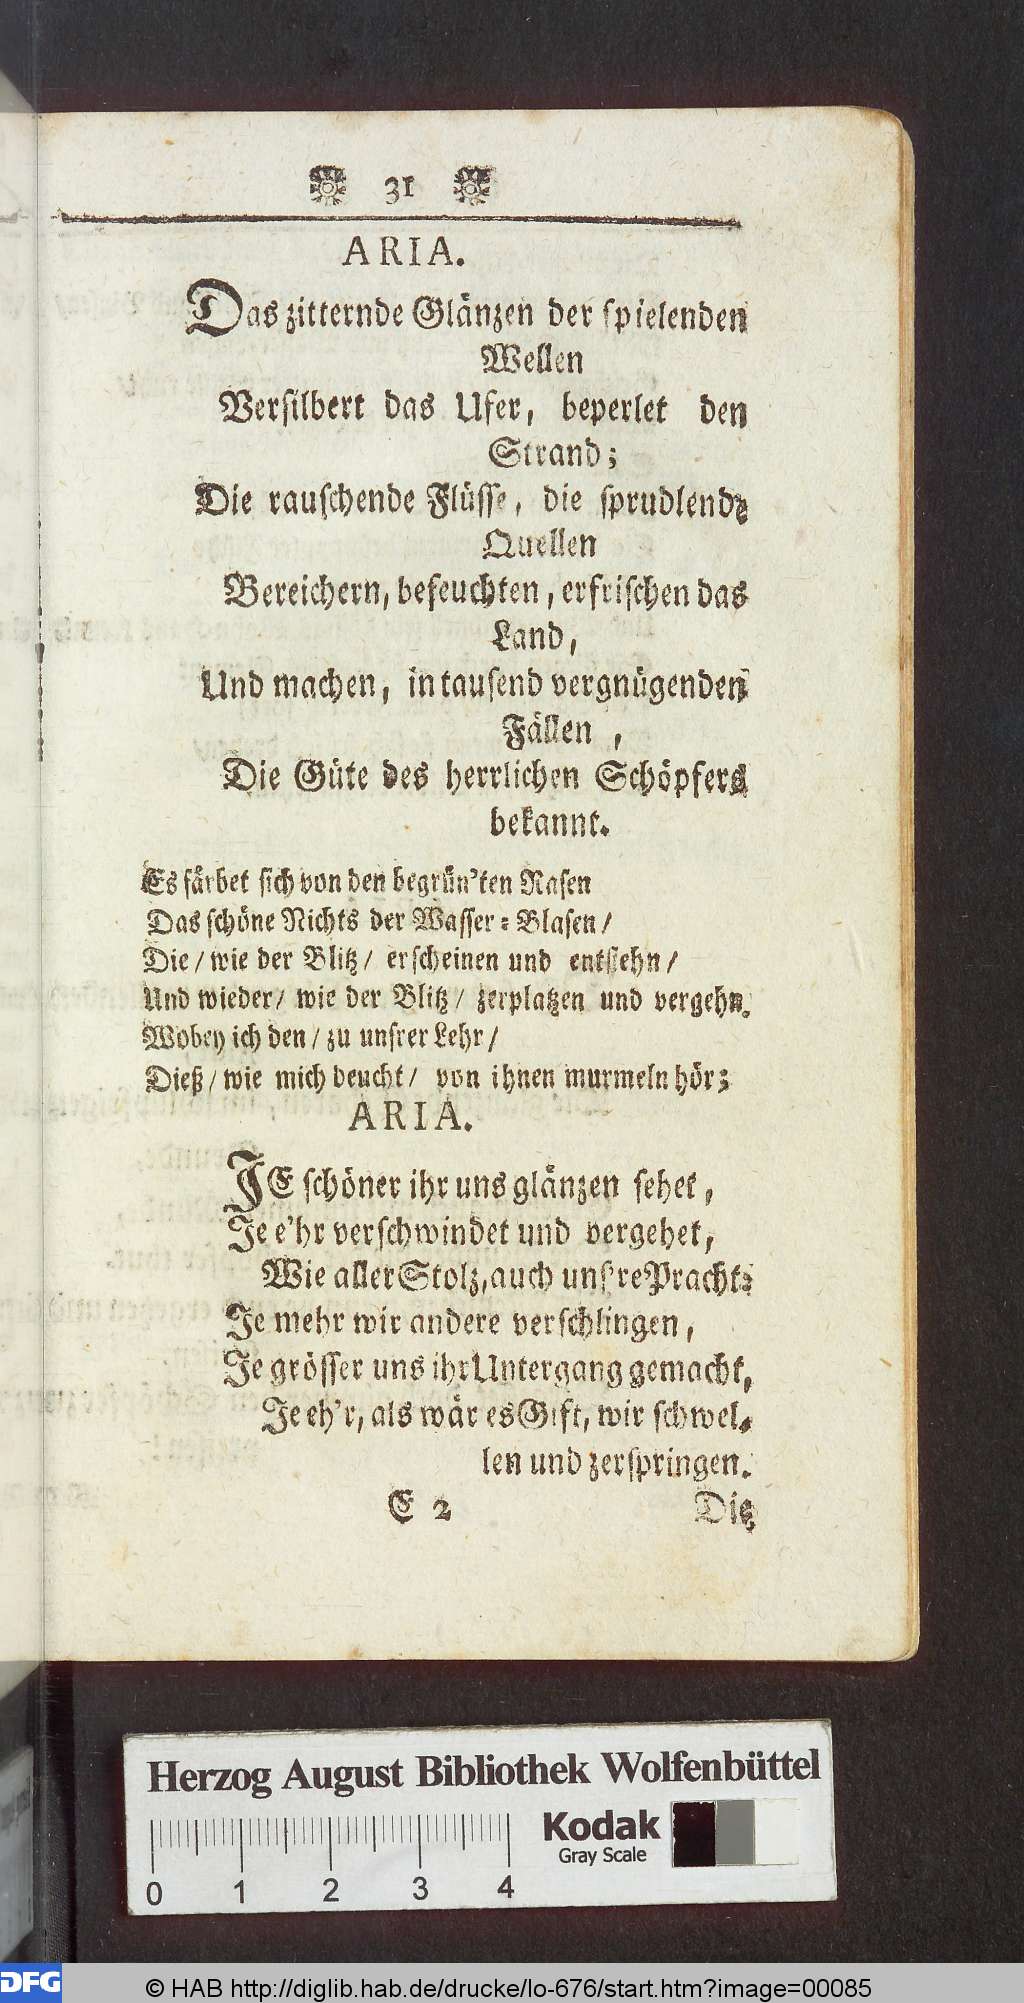 31
ARIA.
Das zitternde Glänzen der spielenden
Wellen
Versilbert das Ufer, beperlet den
Strand;
Die rauschende Flüsse, die sprudlende
Quellen
Bereichern, befeuchten, erfrischen das
Land,
Und machen, in tausend vergnügenden
Fällen,
Die Güte des herrlichen Schöpfers
bekannt.
Es färbet sich von den begrün'ten Rasen
Das schöne Nichts der Wasser-Blasen/
Die/ wie der Blitz/ erscheinen und entstehn/
Und wieder/ wie der Blitz/ zerplatzen und vergehn.
Wobey ich den/ zu unsrer Lehr/
Dieß/ wie mich deucht/ von ihnen murmeln hör:
ARIA.
JE schöner ihr uns glänzen sehet,
Je e'hr verschwindet und vergehet,
Wie aller Stolz, auch unsre Pracht:
Je mehr wir andere verschlingen,
Je grösser uns ihr Untergang gemacht,
Je eh'r, als wär es Gift, wir schwel-
len und zerspringen.
E 2 Die
Herzog August Bibliothek Wolfenbüttel
Kodak
Gray Scale
0 1 2 3 4
DFG
© HAB http://diglib.hab.de/drucke/lo-676/start.htm?image=00085